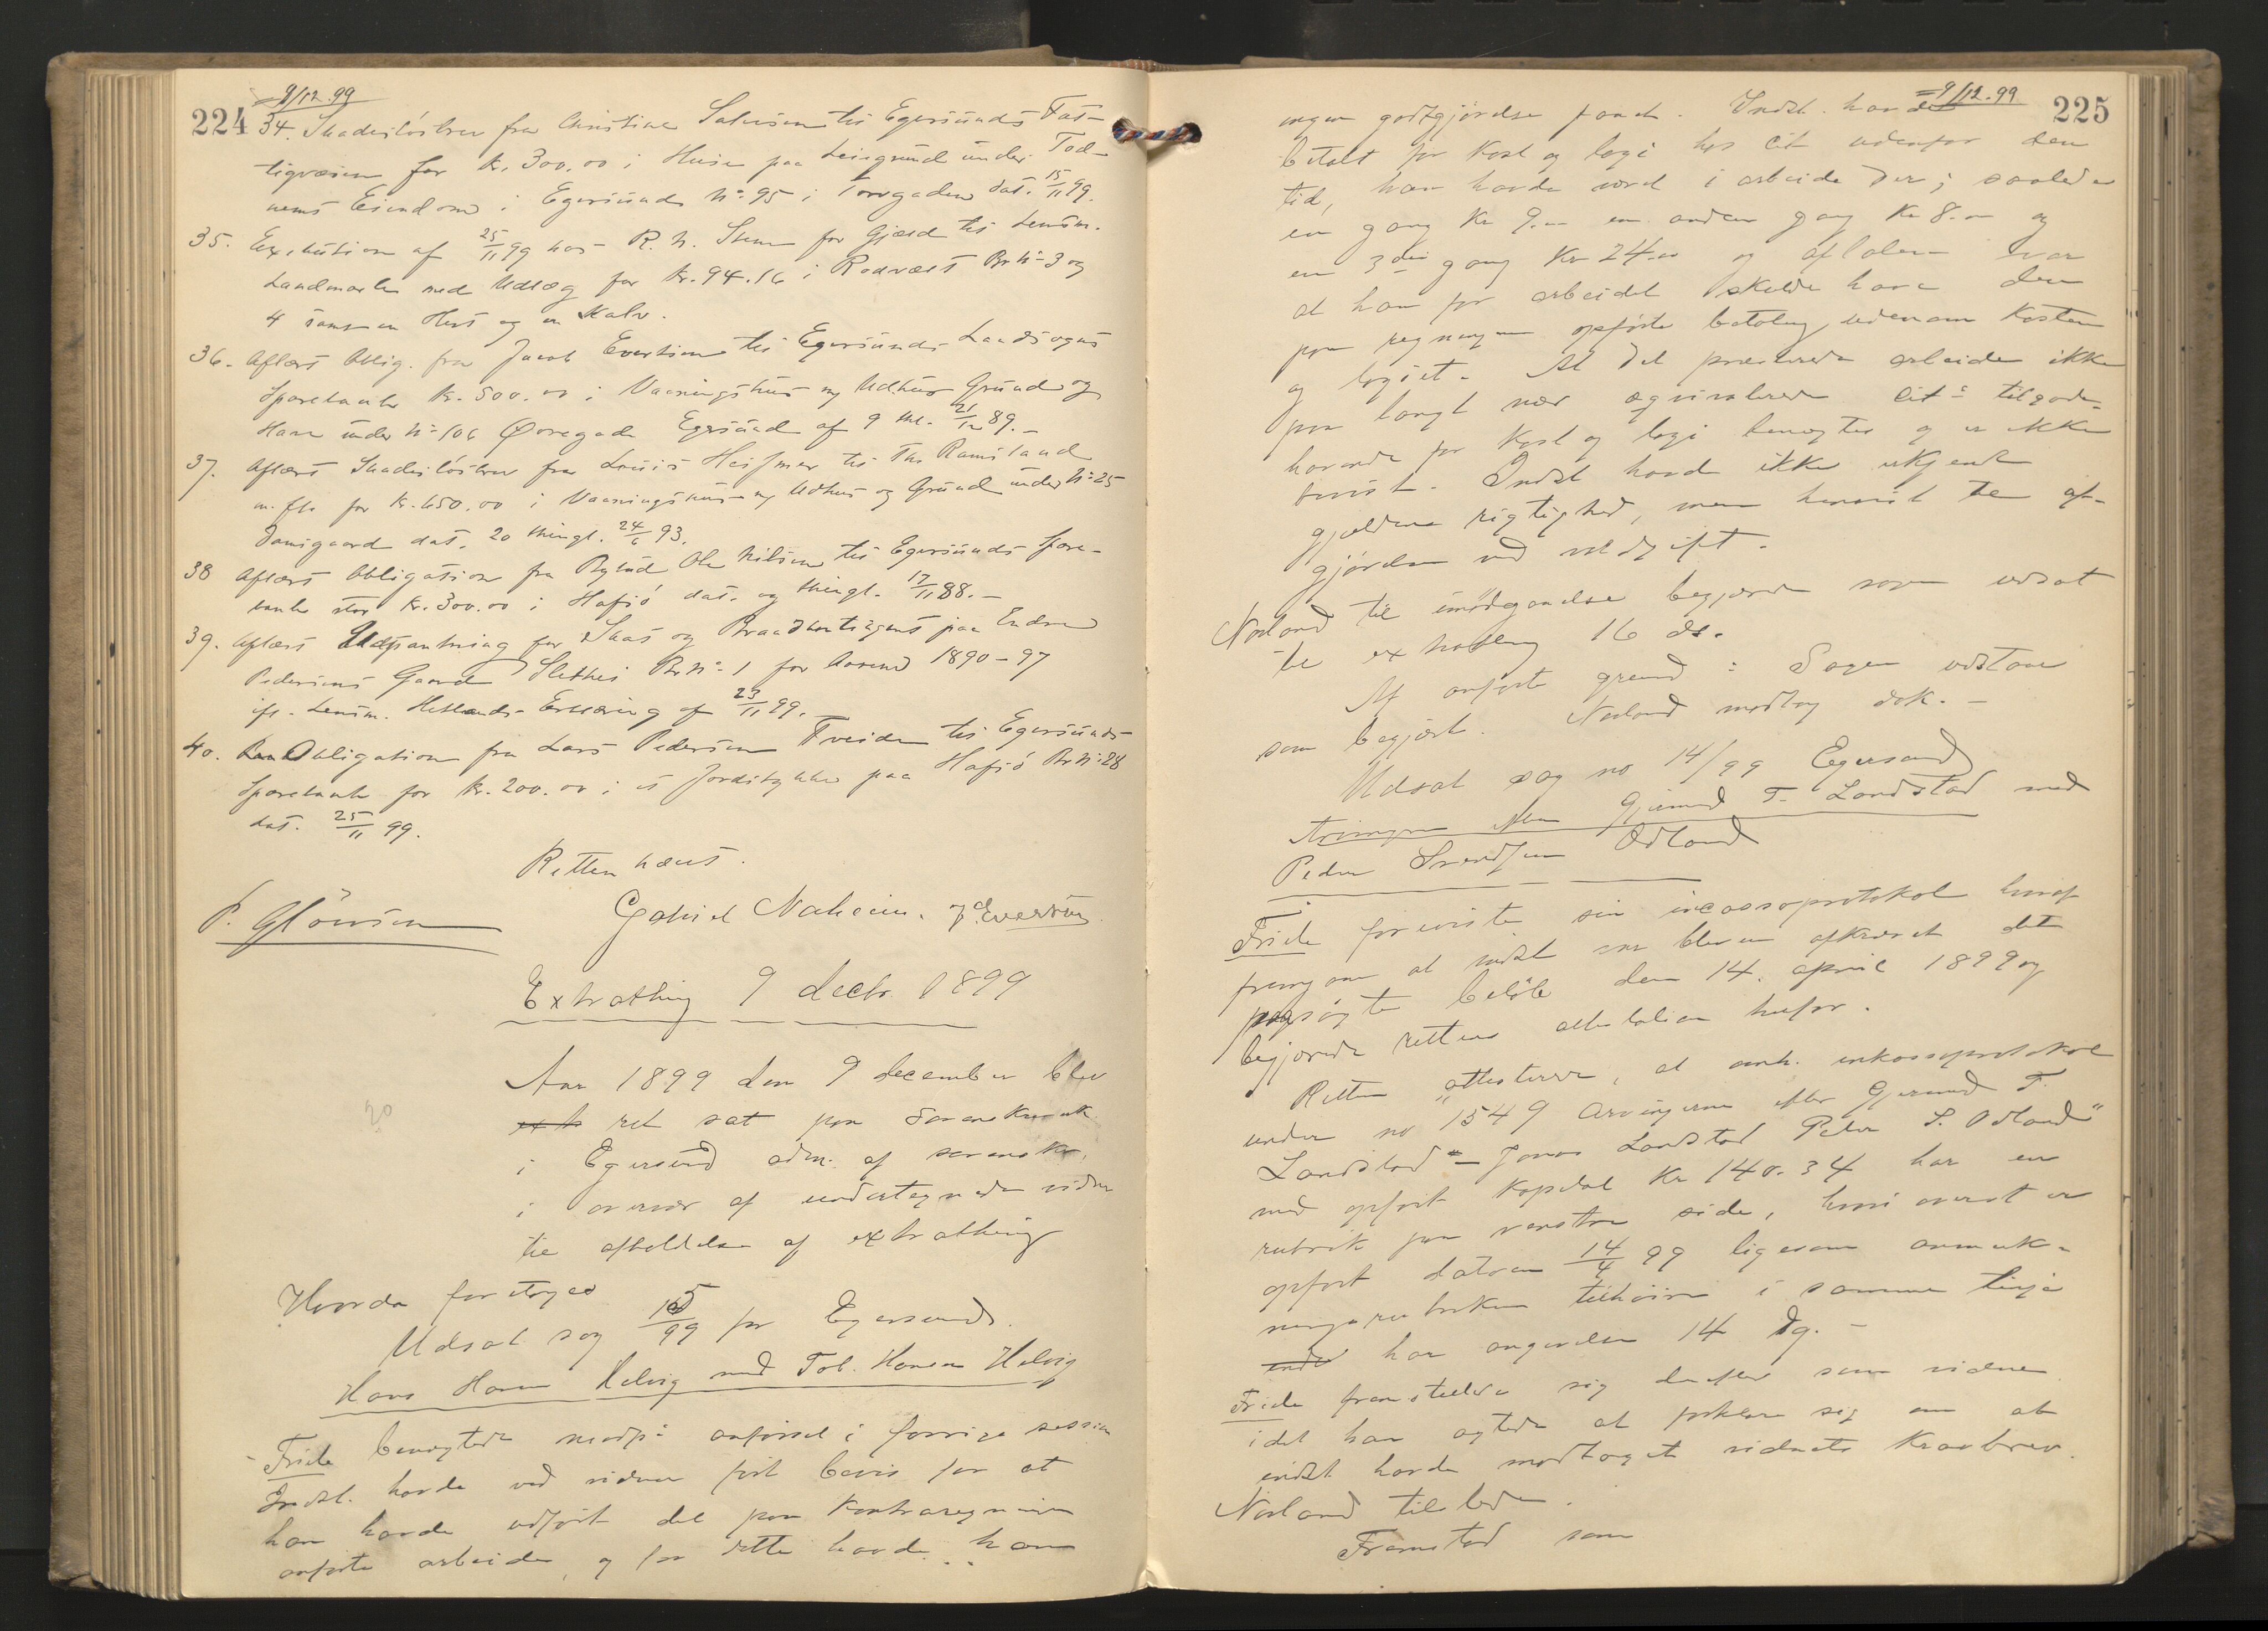 9/12.99
224
34. Skadesløsbrev fra Christine Salvesen til Egersunds Fat-
tigvæsen for Kr. 300,00 i Huse paa Leiegrund under Tod-
nems Eiendom i Egersund No 95 i Torvgaden dat. 15/11 99.
35. Execution af 25/11 99 hos R. N. Stene for Gjæld til Lensm.
Landmark med Udlæg for Kr. 94.16 i Rodvælt Br No 3 og
4 samt en Hest og en Kalv.
36. Aflæst Oblig. fra Jacob Evertsen til Egersunds Landsogns
Sparebank Kr. 500.00 i Vaaningshus og Udhus Grund og
Have under No 106 Øvregade Egersund af 9 thl. 21/12 89.
37. Aflæst Skadesløsbrev fra Louis til Ths Ramsland
m. fl. for Kr. 650,00 i Vaaningshus og Udhus og Grund under No 25
Damsgaard dat. 20 thingl. 24/6 93.
38 Aflæst Obligation fra Ole Nilsen til Egersunds Spare-
bank stor Kr. 300.00 i Hafsö dat. og thingl. 17/11 88.
39. Aflæst Udpantning for Skat og Brandkontingent paa Endre
Pedersens Gaard Slethei Br No 1 for Aarene 1890-97
ifl. Lensm. Hetlands Erklæring af 23/11 99.
40. Obligation fra Lars Pedersen Tveiden til Egersunds
Sparebank for Kr. 200.00 i et Jordstykke paa Hafsö Br No 28
dat. 25/11 99.
Retten hævet.
Gabriel Evertsen
Extrathing 9 decbr 1899
Aar 1899 den 9 december blev
ret sat paa Sorenskr.k
i Egersund adm. af sorenskr.
i overvær af undertegnede vidner
til afholdelse af extrathing
Hvorda foretoges
Udsat sag /99 fra Egersund.
Hans Hansen Helvig med Tob. Hansen Helvig
Friele benegtede modp's anførsel i forrige session
Indst. havde ved vidner ført bevis for at
han havde udført det paa Kontraregningen
anførte arbeide, og for dette havde han
9/12.99
225
ingen godtgjørelse faaet. Indst. havde
betalt for Kost og logi hos Cit udenfor den
tid, han havde været i arbeide der; saaledes
en gang Kr 9.00 en anden gang Kr 8.00 og
en 3die gang Kr 24.00 og aftalen var
at han for arbeidet skulde have den
paa regningen opførte betaling udenom Kosten
og logiet. At det præsterede arbeide ikke
paa langt nær æqvivalerede Cit's tilgode-
havende for Kost og logi benegtes og er ikke
bevist. Indst havde ikke erkjendt
gjældens rigtighed, men henvist til af-
gjørelse ved.
Norland til imødegaaelse begjærede sagen udsat
til extrathing 16 ds.
Af anførte grund: Sagen udstaar
som begjært. Norland modtog dok.
Udsat sag no 14/99 Egersund
Arvingerne efter Gjermund T. Landstad mod
Peder Svendsen Ødland
Friele foreviste sin incassoprotokol hvoraf
fremgaar at indst var bleven afkrævet det
paasøgte beløb den 14. april 1899 og
begjærede rettens attestation herfor.
Retten attesterede, at omh. inkassoprotokol
under no 1549 "Arvingerne efter Gjermund T.
Landstad - Jonas Landstad Peder S. Ødland"
med opført Kapital Kr 140.34 har en
rubrik paa venstre side, hvori øverst er
opført datoen 14/4 99 ligesom anmærk-
ningsrubriken tilhøire i samme linje
har angivelsen 14 dg.
Friele fremstillede sig derefter som vidne
idet han agtede at forklare sig om at
indst havde modtaget vidnets Kravbrev.
Norland tilstede.
Fremstod som